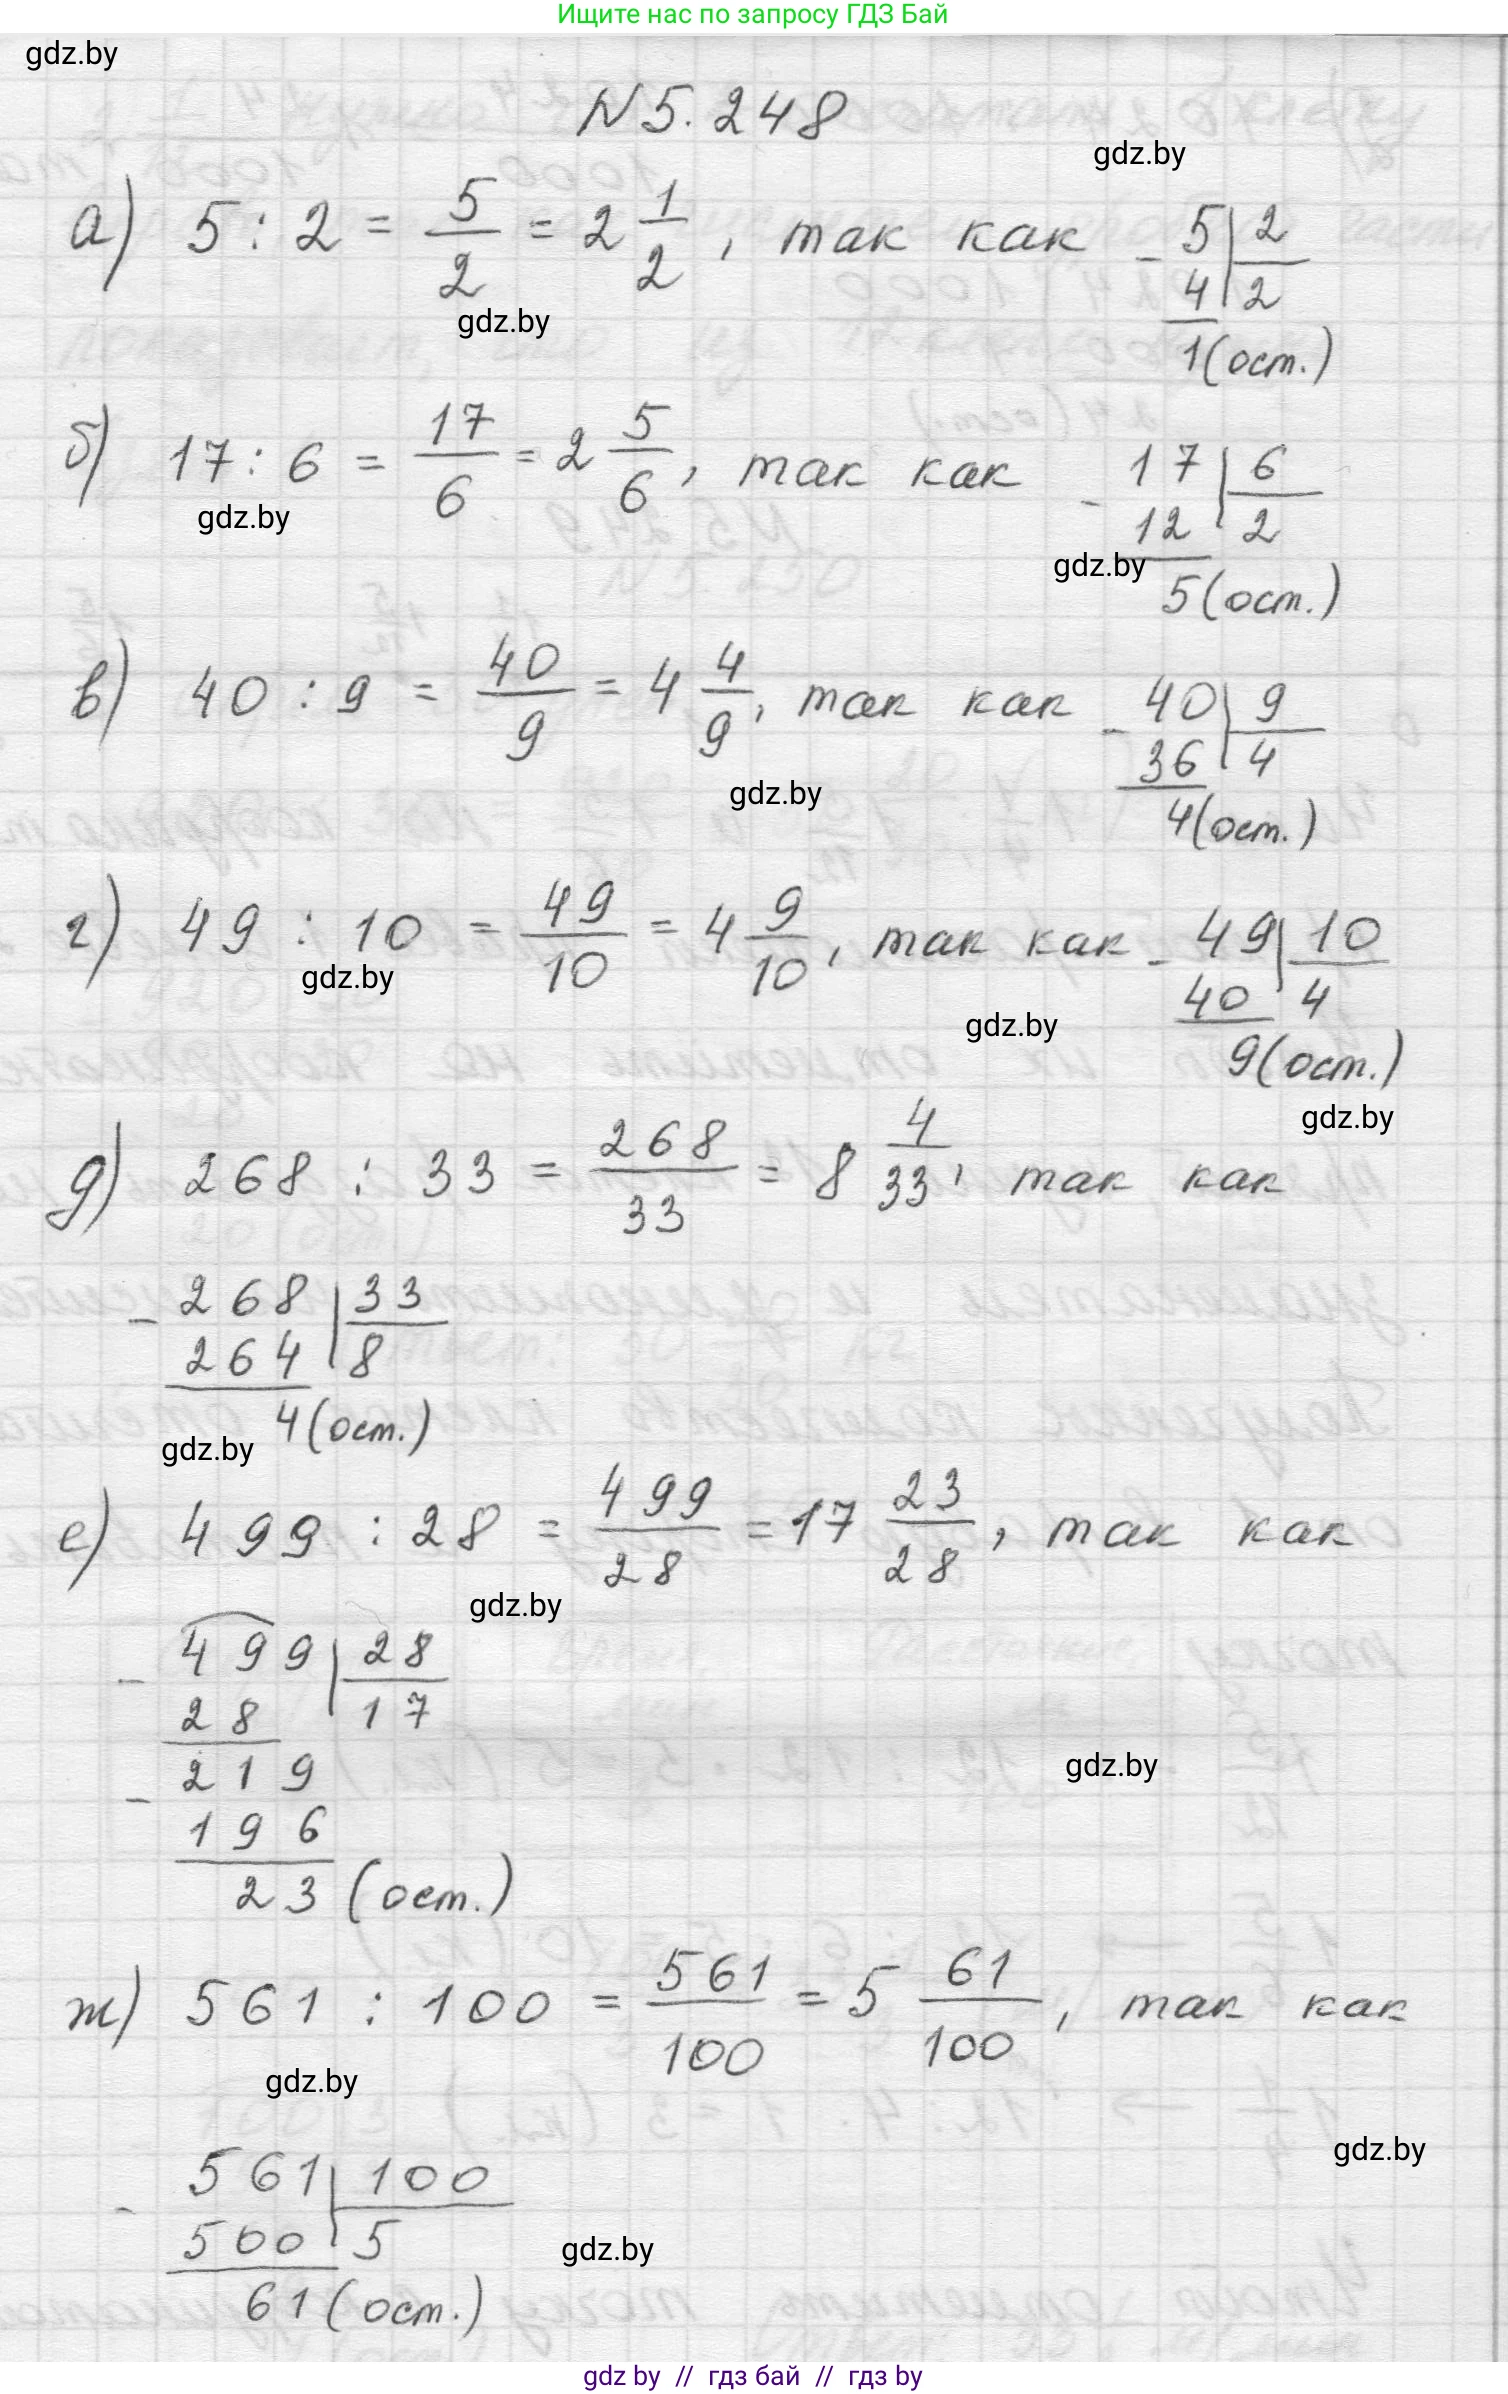 Ищите нас по запросу ГДЗ Бай
gdz.by
N 5.248
gdz.by
а) 5 : 2 = 5/2 = 2 1/2, так как
5 | 2
- 4 | 2
1 (ост.)
gdz.by
б) 17 : 6 = 17/6 = 2 5/6, так как
17 | 6
- 12 | 2
5 (ост.)
gdz.by
gdz.by
в) 40 : 9 = 40/9 = 4 4/9, так как
40 | 9
- 36 | 4
4 (ост.)
gdz.by
г) 49 : 10 = 49/10 = 4 9/10, так как
49 | 10
- 40 | 4
9 (ост.)
gdz.by
gdz.by
gdz.by
д) 268 : 33 = 268/33 = 8 4/33, так как
268 | 33
- 264 | 8
4 (ост.)
gdz.by
е) 499 : 28 = 499/28 = 17 23/28, так как
gdz.by
499 | 28
- 28 | 17
219
gdz.by
- 196
23 (ост.)
ж) 561 : 100 = 561/100 = 5 61/100, так как
gdz.by
gdz.by
561 | 100
- 500 | 5
gdz.by
61 (ост.)
gdz by // гдз бай // гдз by